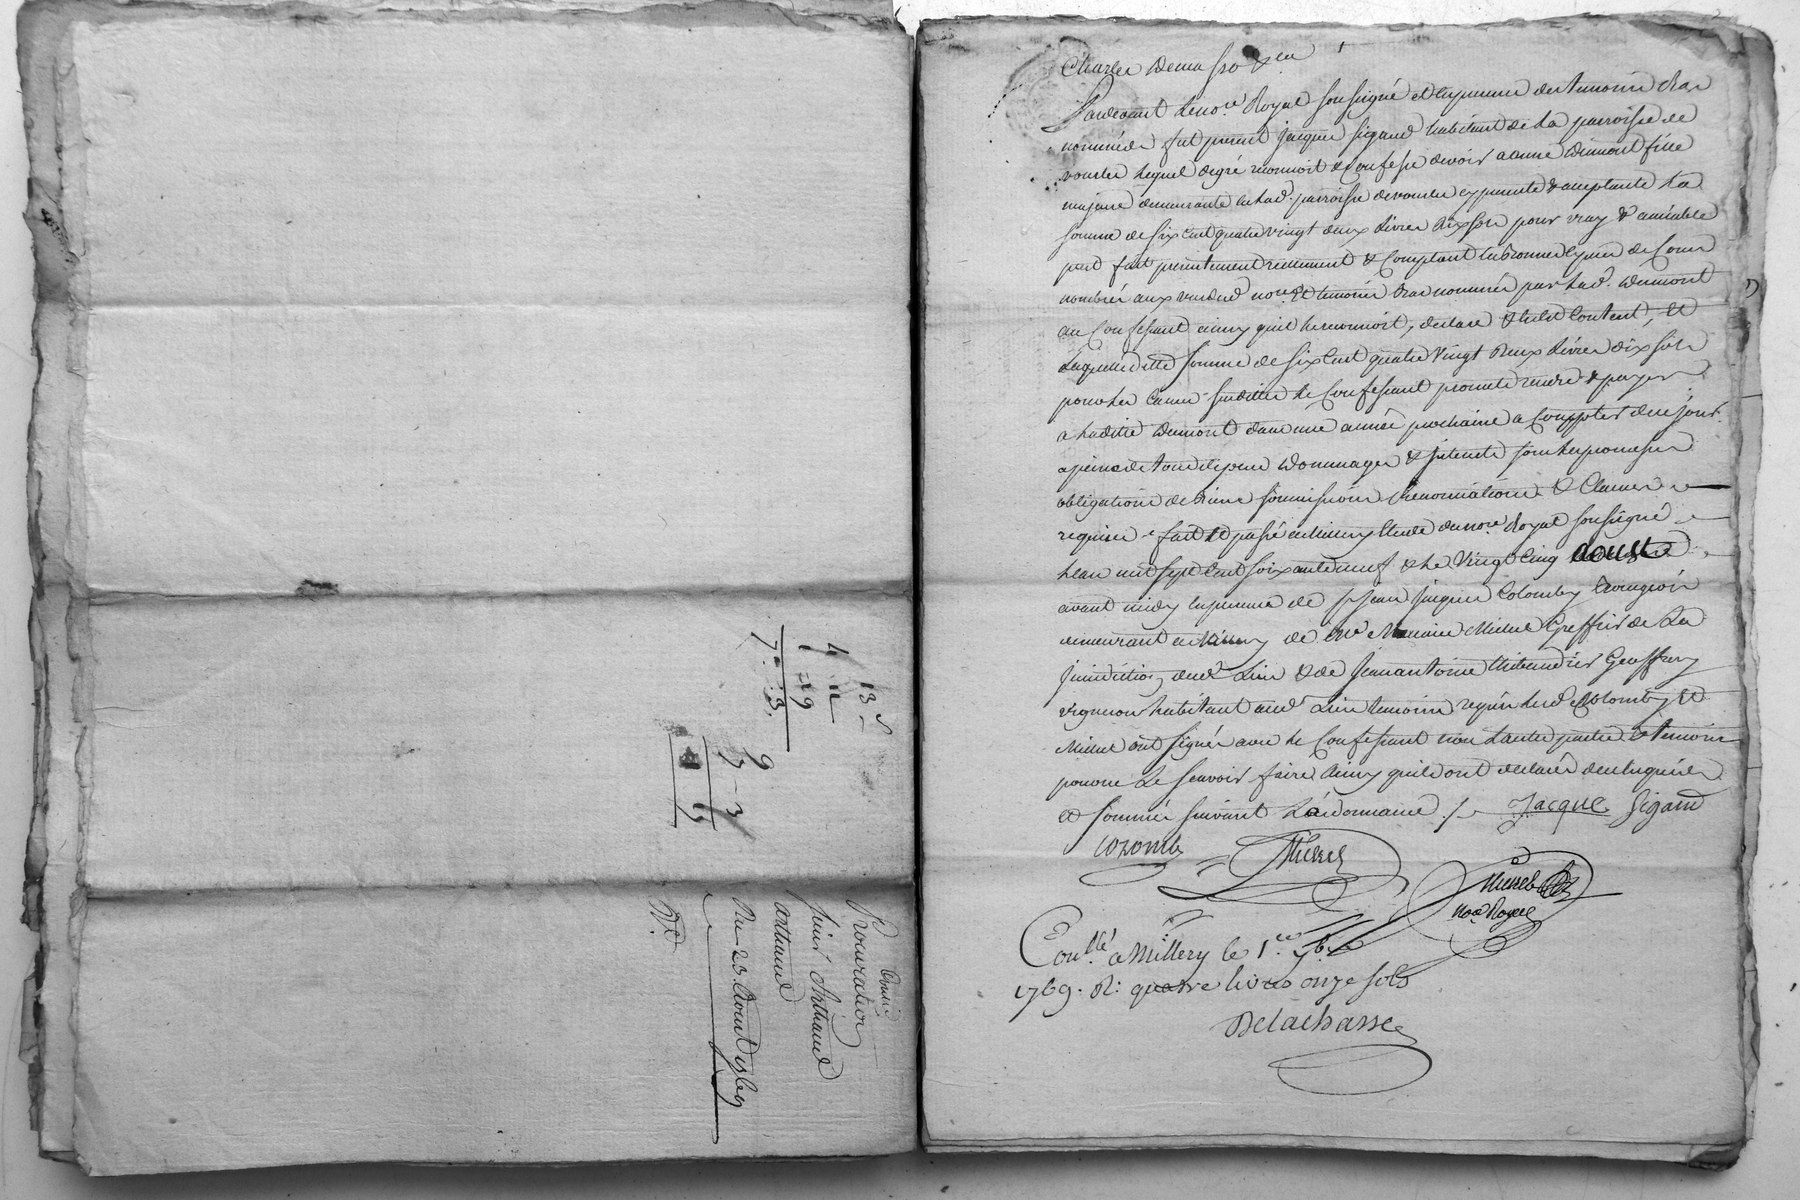 13 s
4 11
1 9
7 13
9
7 3
Procuration
sieur Arthaud
arthaud
Du 23. Aoust 1769
Pardevant le no.re Royal soussigné et en presence des temoins bas
nommés fut present jacques sigaud habitant de la parroisse de
vourles lequel de gré reconnoit & confesse devoir a anne dumont fille
majeure demeurante en lad. parroisse de vourles cy presente & acceptante la
somme de six cent quatre vingt deux livres dix sols pour vray & amiable
pret fait presentement reellement & comptant en bonnes especes de cours
nombrées aux vues dud. no.re Et temoins bas nommés par lad. dumont
au confessant ainsy qu'il le reconnoit, declare & s'en est content, Et
laquelle ditte somme de six cent quatre vingt deux livres dix sols
pour les causes susdittes le confessant promet rendre & payer
a laditte dumont dans une année prochaine a compter de ce jour
a peine de tous depens dommages & interets sous les promesses
obligations de biens soumissions renonciations & clauses
requises fait et passé a Millery etude du no.re Royal soussigné
l'an mil sept cent soixante neuf & le vingt cinq aoust
avant midy en presence de s.r jean jacques Colomby bourgeois
demeurant a Millery de M.e Michel Greffier de la
jurisdiction dud. Lieu & de jean antoine Geoffray
vigneron habitant aud. Lieu temoins requis led. Colomby &
Michel ont signés avec le confessant non l'autre partie & temoin
pour ne le sçavoir faire ainsy qu'ils ont declarés de ce enquis
et sommés suivant l'ordonnance ./. Jacque Sigaud
Colomby Michel
Michel
no.re Royal
Con.lé a Millery le 1.er 7bre
1769. R: quatre livres onze sols
Delachasse